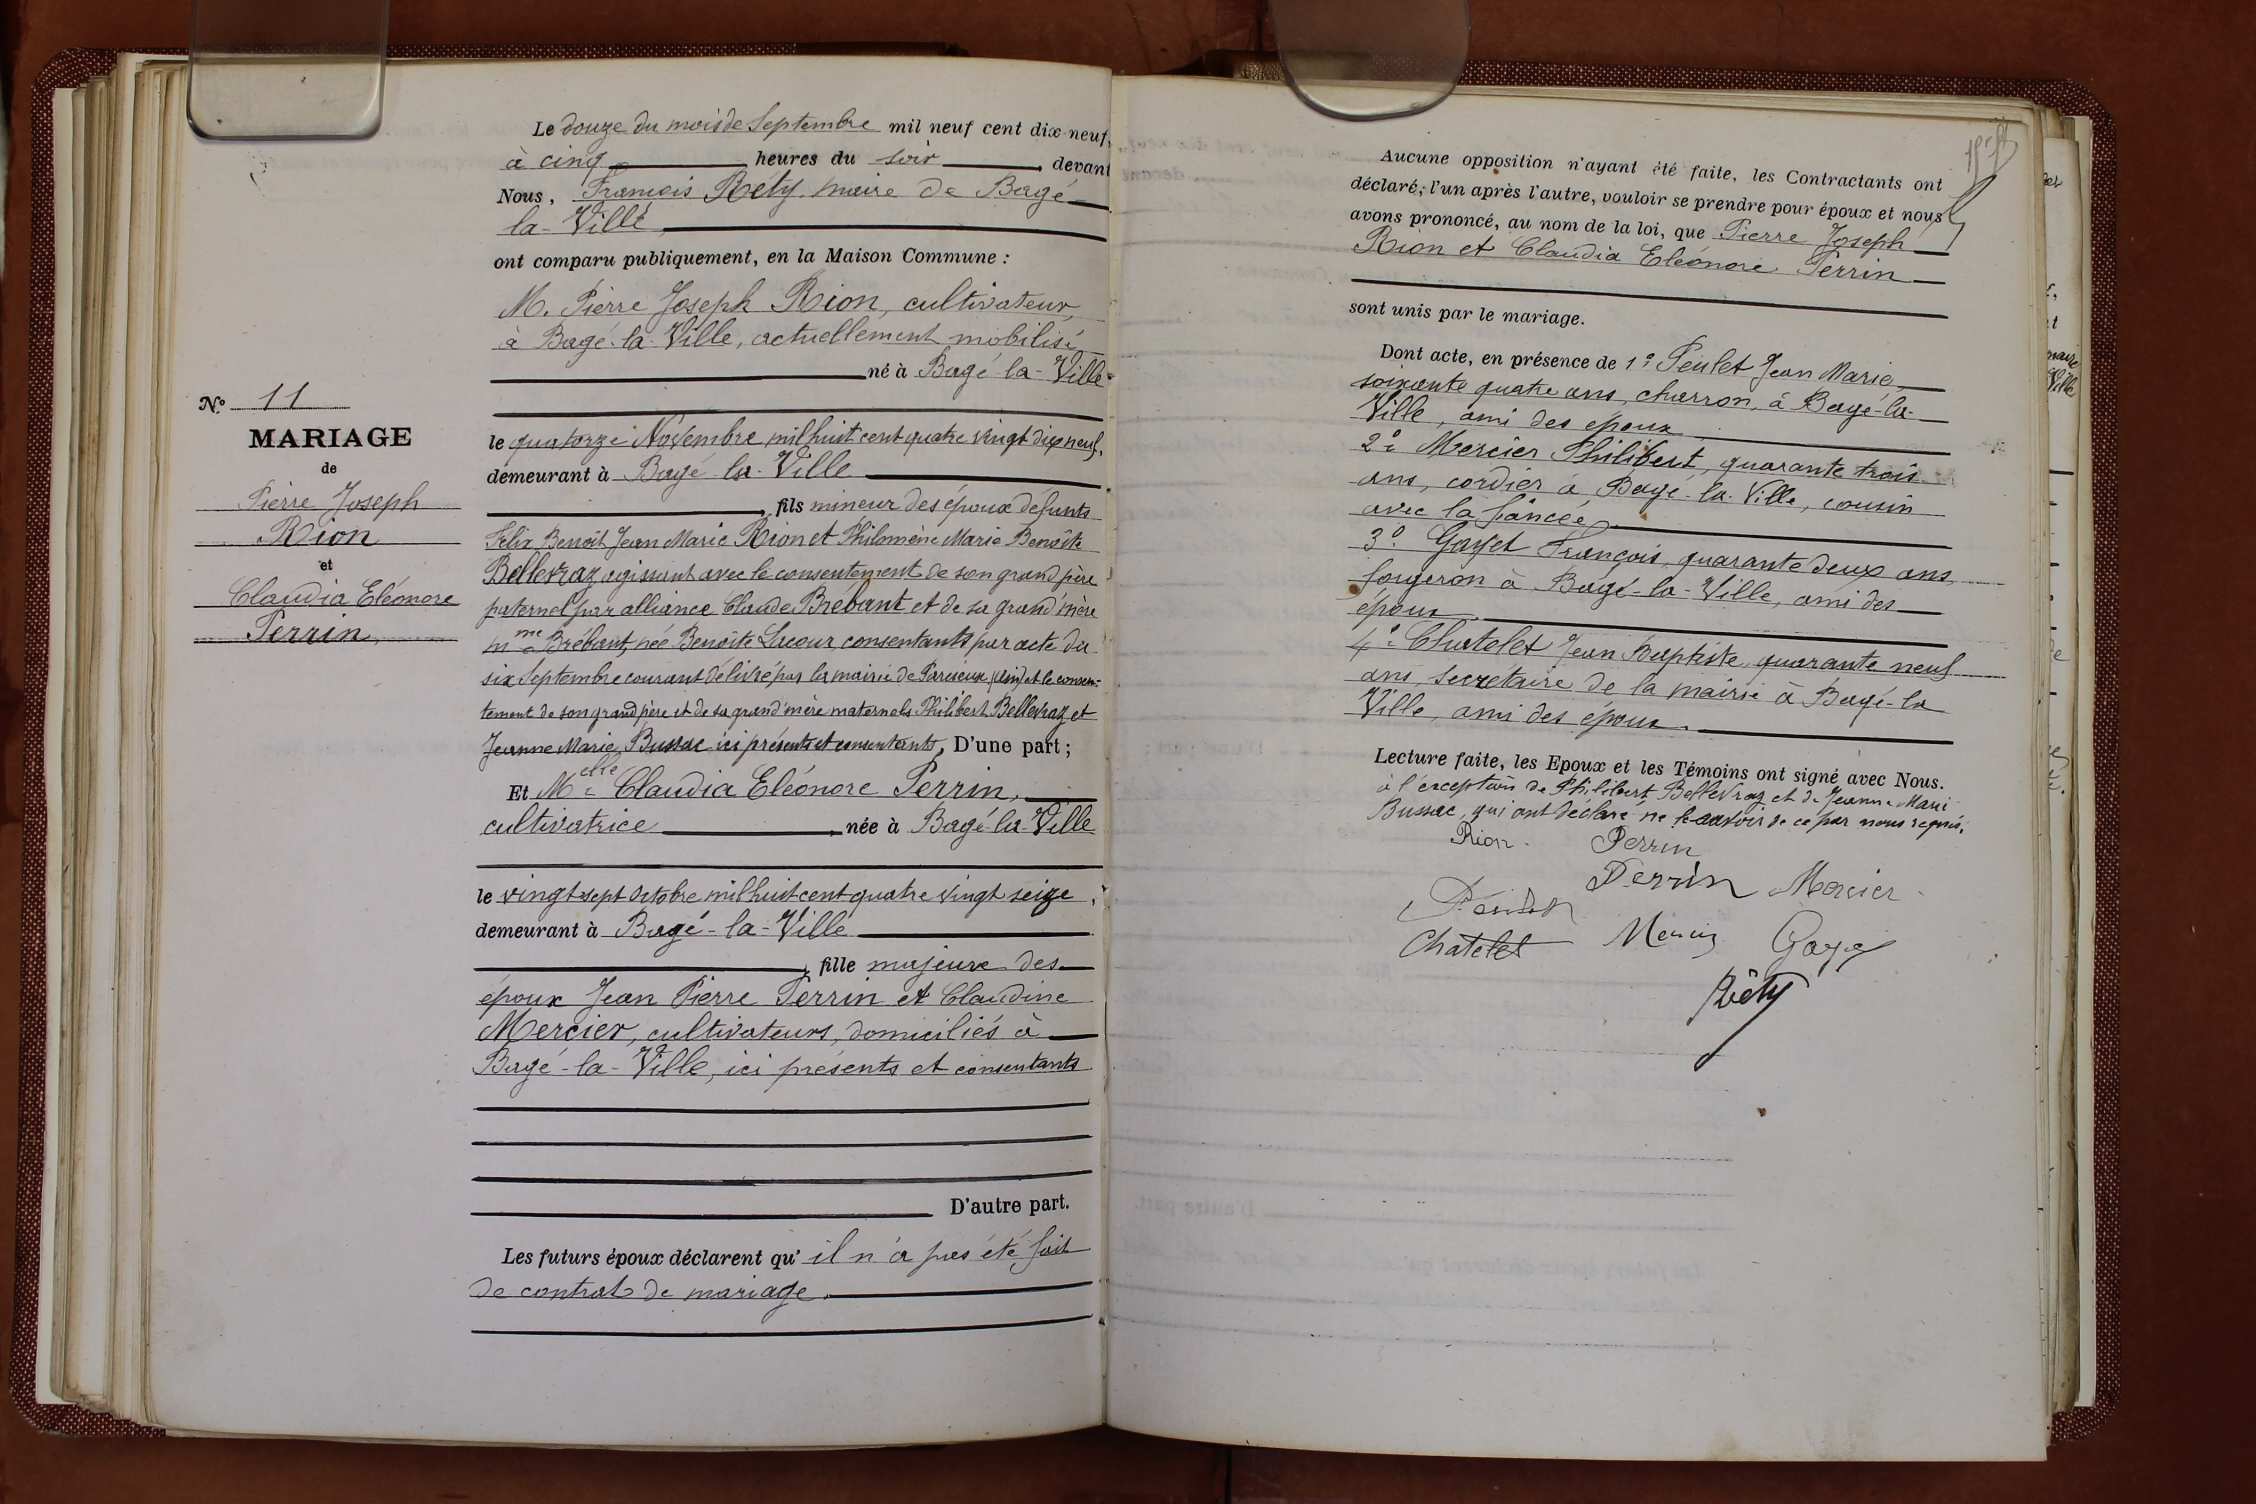 N.° 11
MARIAGE
de
Pierre Joseph
Rion
et
Claudia Eléonore
Perrin,
Le douze du mois de Septembre mil neuf cent dix-neuf,
à cinq heures du soir, devant
Nous, François Réty, maire de Bagé-
la-Ville
ont comparu publiquement, en la Maison Commune :
M. Pierre Joseph Rion, cultivateur,
à Bagé-la-Ville, actuellement mobilisé,
né à Bagé-la-Ville
le quatorze Novembre mil huit cent quatre vingt dix neuf,
demeurant à Bagé-la-Ville
, fils mineur des époux défunts
Félix Benoît Jean Marie Rion et Philomène Marie Benoîte
Bellevraz, agissant avec le consentement de son grand père
paternel par alliance Claude Brébant et de sa grand'mère
Mme Brébant, née Benoîte Lacour, consentants par acte du
six Septembre courant délivré par la mairie de Parcieux (Ain) et le consen-
tement de son grand père et de sa grand'mère maternels Philibert Bellevraz et
Jeanne Marie Bussac ici présents et consentants, D'une part ;
Et Melle Claudia Eléonore Perrin,
cultivatrice, née à Bagé-la-Ville
le vingt sept Octobre mil huit cent quatre vingt seize,
demeurant à Bagé-la-Ville
, fille majeure des
époux Jean Pierre Perrin et Claudine
Mercier, cultivateurs, domiciliés à
Bagé-la-Ville, ici présents et consentants
D'autre part.
Les futurs époux déclarent qu'il n'a pas été fait
de contrat de mariage.
Aucune opposition n'ayant été faite, les Contractants ont
déclaré, l'un après l'autre, vouloir se prendre pour époux et nous
avons prononcé, au nom de la loi, que Pierre Joseph
Rion et Claudia Eléonore Perrin
sont unis par le mariage.
Dont acte, en présence de 1° Peulet Jean Marie,
soixante quatre ans, charron, à Bagé-la-
Ville, ami des époux
2° Mercier Philibert, quarante trois
ans, cordier à Bagé-la-Ville, cousin
avec la fiancée
3° Gayet François, quarante deux ans,
forgeron à Bagé-la-Ville, ami des
époux
4° Chatelet Jean Baptiste, quarante neuf
ans, secrétaire de la mairie à Bagé-la
Ville, ami des époux.
Lecture faite, les Epoux et les Témoins ont signé avec Nous.
à l'exception de Philibert Bellevraz et de Jeanne Marie
Bussac, qui ont déclaré ne le savoir de ce par nous requis.
Rion Perrin
Perrin Mercier
Peulet
Chatelet Mercier Gayet
Réty